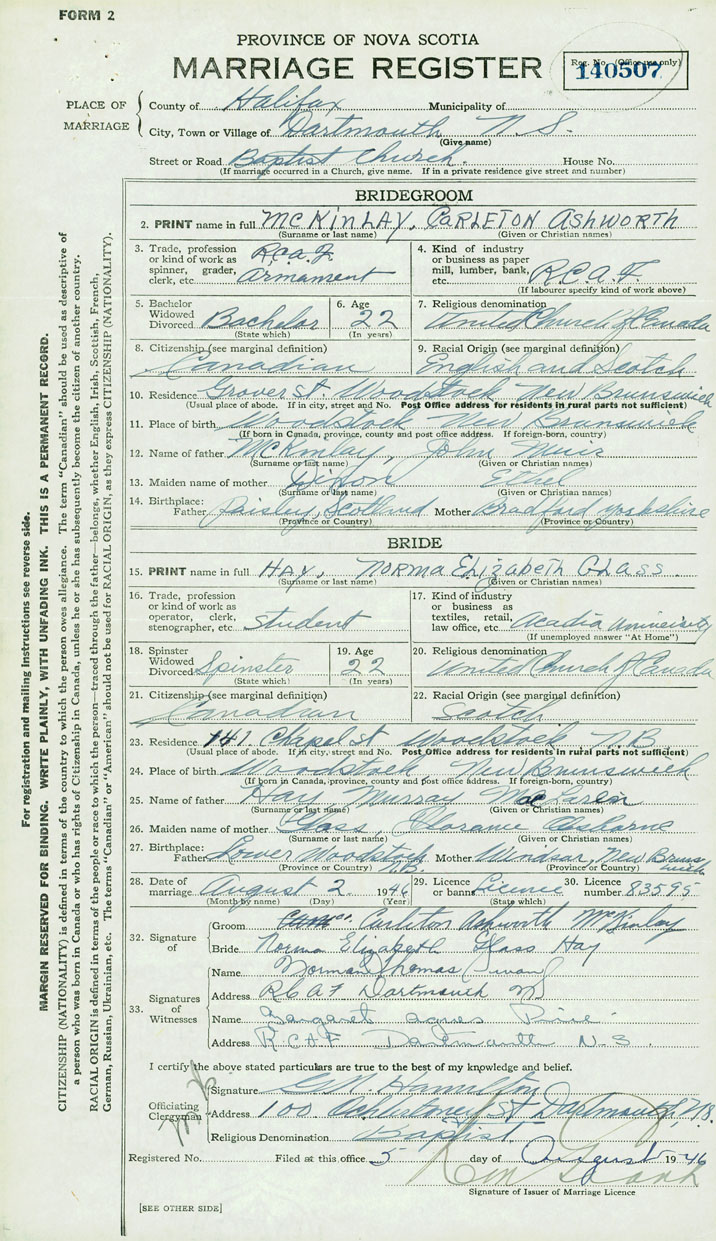 FORM 2
PROVINCE OF NOVA SCOTIA
MARRIAGE REGISTER
Reg. No. (Office use only)
140507
PLACE OF MARRIAGE
County of Halifax Municipality of
City, Town or Village of Dartmouth N.S.
(Give name)
Street or Road Baptist Church. House No.
(If marriage occurred in a Church, give name. If in a private residence give street and number)
BRIDEGROOM
2. PRINT name in full McKINLAY, CARLETON ASHWORTH
(Surname or last name) (Given or Christian names)
3. Trade, profession or kind of work as spinner, grader, clerk, etc. R.C.A.F. Armament
4. Kind of industry or business as paper mill, lumber, bank, etc. R.C.A.F.
(If labourer specify kind of work above)
5. Bachelor Widowed Divorced Bachelor
(State which)
6. Age 22
(In years)
7. Religious denomination
United Church of Canada
8. Citizenship (see marginal definition)
Canadian
9. Racial Origin (see marginal definition)
English and Scotch
10. Residence Grover St. Woodstock New Brunswick
(Usual place of abode. If in city, street and No. Post Office address for residents in rural parts not sufficient)
11. Place of birth Woodstock New Brunswick
(If born in Canada, province, county and post office address. If foreign-born, country)
12. Name of father McKinlay, John Muir
(Surname or last name) (Given or Christian names)
13. Maiden name of mother Dixon Ethel
(Surname or last name) (Given or Christian names)
14. Birthplace: Father Paisley, Scotland Mother Bradford Yorkshire
(Province or Country) (Province or Country)
BRIDE
15. PRINT name in full HAY, NORMA ELIZABETH GLASS.
(Surname or last name) (Given or Christian names)
16. Trade, profession or kind of work as operator, clerk, stenographer, etc. Student
17. Kind of industry or business as textiles, retail, law office, etc. Acadia University
(If unemployed answer "At Home")
18. Spinster Widowed Divorced Spinster
(State which)
19. Age 22
(In years)
20. Religious denomination
United Church of Canada
21. Citizenship (see marginal definition)
Canadian
22. Racial Origin (see marginal definition)
Scotch
23. Residence 141 Chapel St Woodstock N.B.
(Usual place of abode. If in city, street and No. Post Office address for residents in rural parts not sufficient)
24. Place of birth Woodstock, New Brunswick
(If born in Canada, province, county and post office address. If foreign-born, country)
25. Name of father Hay, Murray MacLaren
(Surname or last name) (Given or Christian names)
26. Maiden name of mother Glass,
(Surname or last name) (Given or Christian names)
27. Birthplace: Father Lower Woodstock N.B. Mother Windsor, New Brunswick
(Province or Country) (Province or Country)
28. Date of marriage August 2 1946
(Month by name) (Day) (Year)
29. Licence or banns Licence
(State which)
30. Licence number 83595
32. Signature of
Groom Carleton Ashworth McKinlay
Bride Norma Elizabeth Glass Hay
33. Signatures of Witnesses
Name Norman Thomas
Address R.C.A.F. Dartmouth N.S.
Name Margaret Agnes
Address R.C.A.F. Dartmouth N.S.
I certify the above stated particulars are true to the best of my knowledge and belief.
Officiating Clergyman
Signature Hamilton
Address 100 St Dartmouth N.S.
Religious Denomination Baptist.
Registered No. Filed at this office 5 day of August 1946
Signature of Issuer of Marriage Licence
[SEE OTHER SIDE]
For registration and mailing instructions see reverse side.
MARGIN RESERVED FOR BINDING. WRITE PLAINLY, WITH UNFADING INK. THIS IS A PERMANENT RECORD.
CITIZENSHIP (NATIONALITY) is defined in terms of the country to which the person owes allegiance. The term "Canadian" should be used as descriptive of
a person who was born in Canada or who has rights of Citizenship in Canada, unless he or she has subsequently become the citizen of another country.
RACIAL ORIGIN is defined in terms of the people or race to which the person—traced through the father—belongs, whether English, Irish, Scottish, French,
German, Russian, Ukrainian, etc. The terms "Canadian" or "American" should not be used for RACIAL ORIGIN, as they express CITIZENSHIP (NATIONALITY).